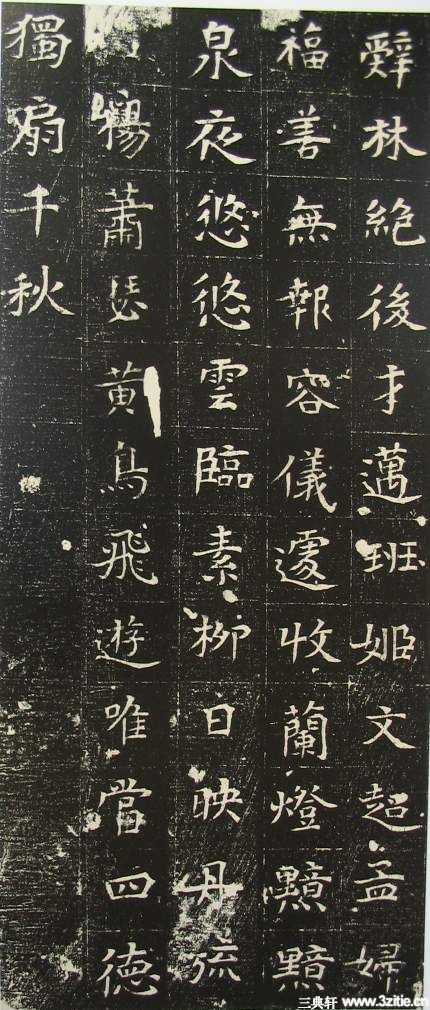 辤林絶後才邁班姬文超孟婦
福善無報容儀遽收蘭燈
泉夜悠悠雲臨素柳日映丹旒
楊蕭瑟黃鳥飛遊唯當四德
獨扇千秋
三典轩 www.3zitie.cn